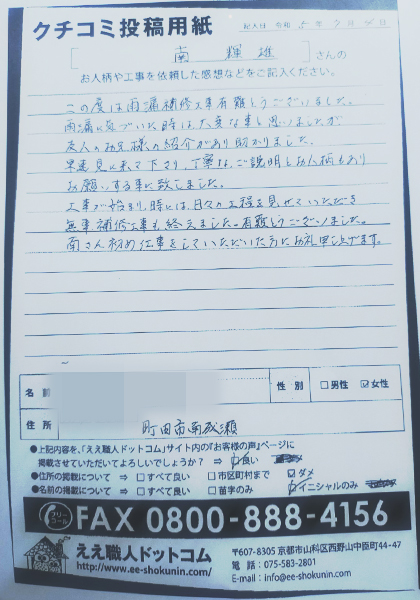 クチコミ投稿用紙
記入日 令和 5年 7月 日
南 輝雄 さんの
お人柄や工事を依頼した感想などをご記入ください。
この度は雨漏補修工事有難とうございました。
雨漏に気づいた時は大変な事と思いましたが
友人のお兄様の紹介があり助かりました。
早速見に来て下さり、丁寧な、ご説明とお人柄もあり
お願いする事に致しました。
工事が始まり、時には、日々の工程を見せていただき
無事補修工事も終えました。有難とうございました。
南さん初め仕事をしていただいた方にお礼申し上げます。
名前
性別 □男性 ☑女性
住所 町田市南成瀬
●上記内容を、「ええ職人ドットコム」サイト内の『お客様の声』ページに
掲載させていただいてよろしいでしょうか? ⇒ ☑良い
●住所の掲載について ⇒ □すべて良い □市区町村まで ☑ダメ
●名前の掲載について ⇒ □すべて良い □苗字のみ ☑イニシャルのみ
フリーコール FAX 0800-888-4156
ええ職人ドットコム
http://www.ee-shokunin.com/
〒607-8305 京都市山科区西野山中臣町44-47
電話:075-583-2801
E-mail:info@ee-shokunin.com